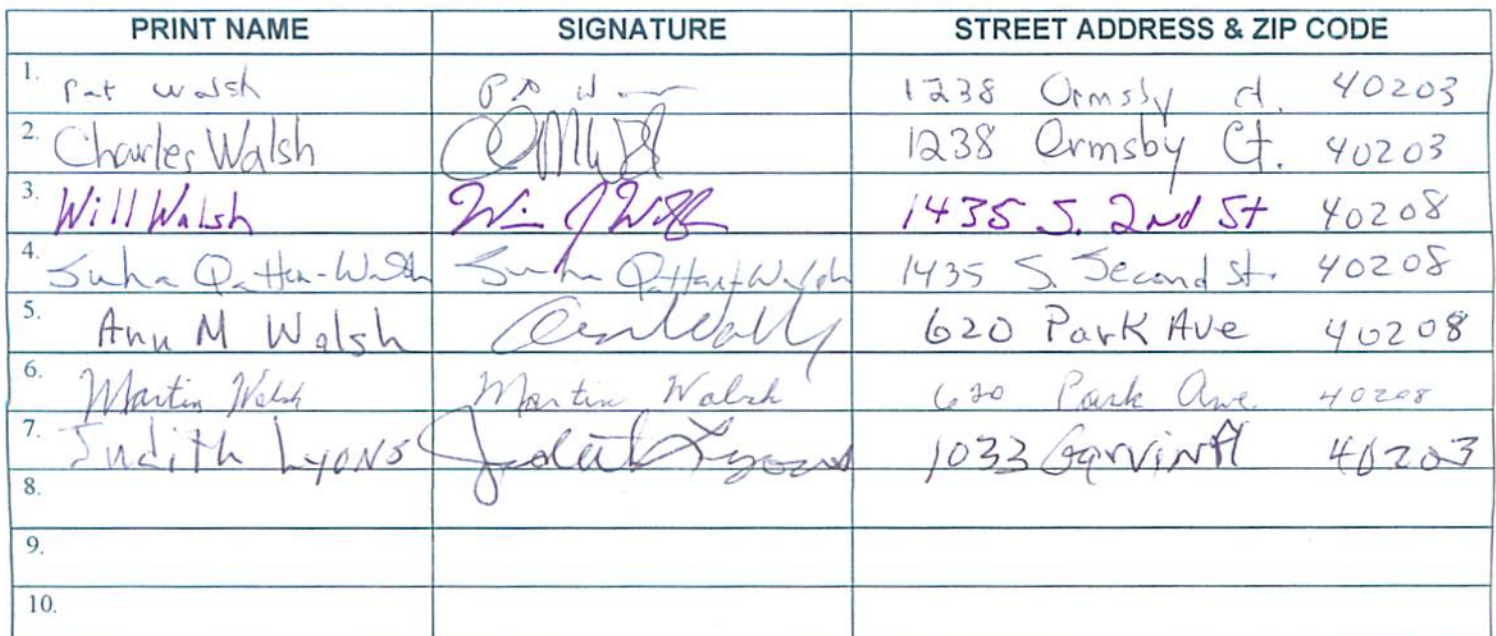 PRINT NAME SIGNATURE STREET ADDRESS & ZIP CODE
1. Pat Walsh 1238 Ormsby ct. 40203
2. Charles Walsh 1238 Ormsby Ct. 40203
3. Will Walsh 1435 S. 2nd St 40208
4. Suha 1435 S. Second St. 40208
5. Ann M Walsh 620 Park Ave 40208
6. Martin Walsh Martin Walsh 620 Park Ave. 40208
7. Judith Lyons Judith Lyons 1033 Garvin Pl 40203
8.
9.
10.